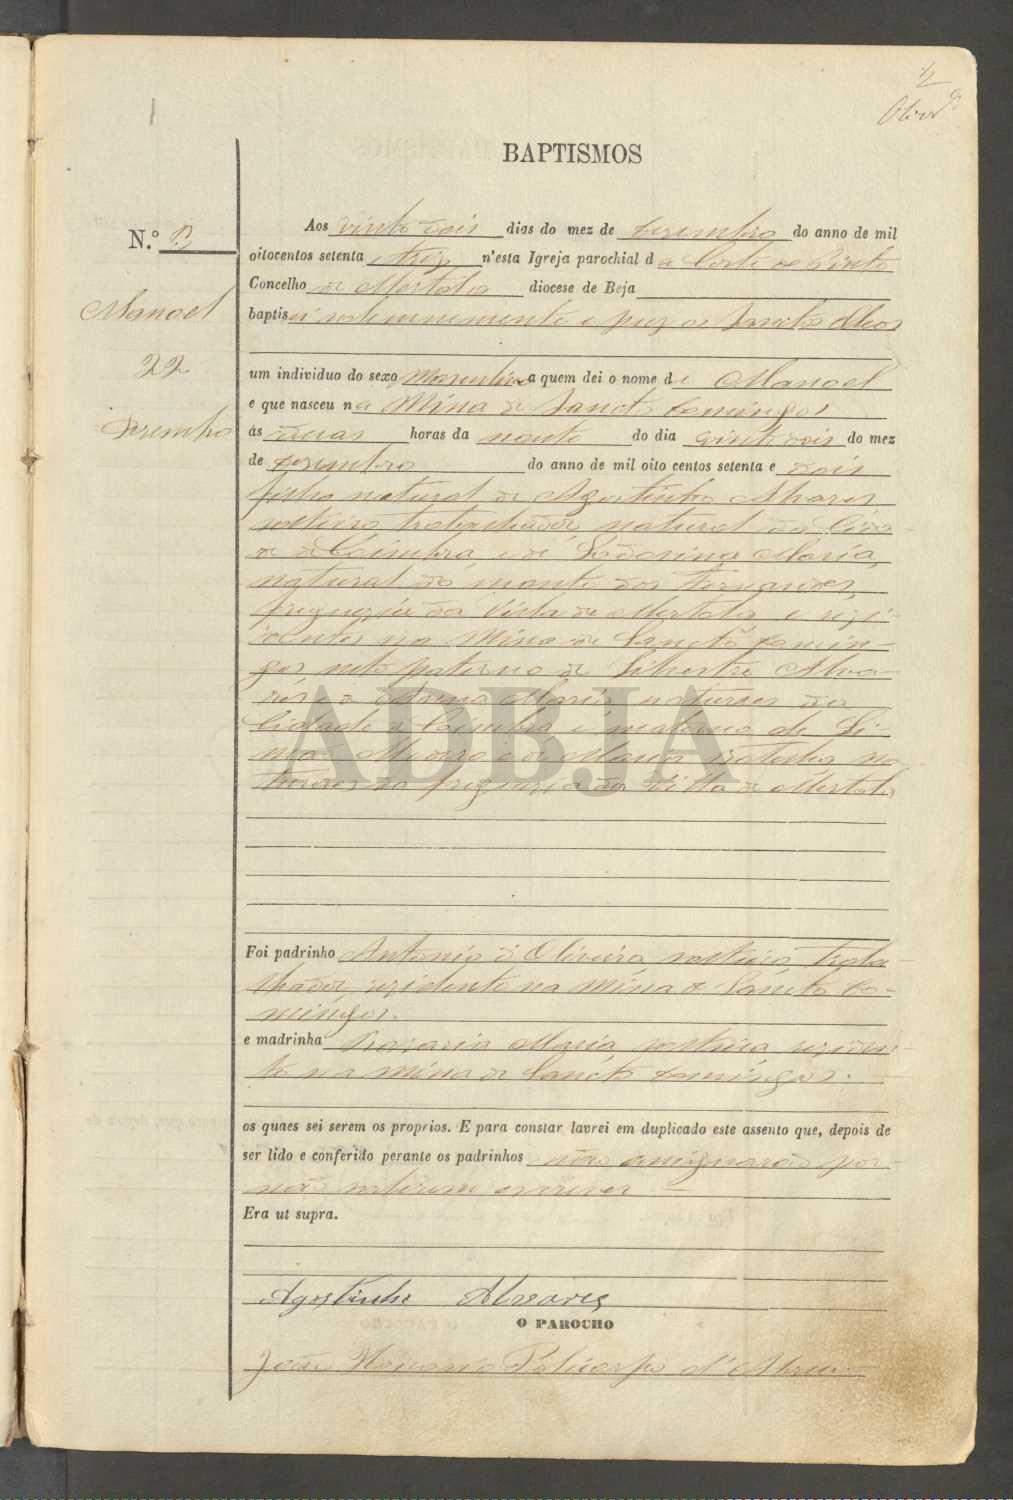 1/2
1
BAPTISMOS
N.º
Manoel
22
Aos vinte dois dias do mez de dezembro do anno de mil
oitocentos setenta e trez n'esta Igreja parochial da Corte do Pinto
Concelho de Mertola diocese de Beja
baptisei solemnemente e puz os Sanctos oleos
um individuo do sexo Masculino a quem dei o nome de Manoel
e que nasceu na Mina de Sancto Domingos
ás duas horas da noute do dia vinte dois do mez
de dezembro do anno de mil oito centos setenta e dois
filho natural de Agostinho Alvares
solteiro trabalhador natural da Cida-
de de Coimbra, e de Maria,
natural do monte dos Fernandes,
freguezia da Villa de Mertola e rezi-
dentes na Mina de Sancto Domin-
gos neto paterno de Silvestre Alva-
res e Maria naturaes da
Cidade de Coimbra e materno de Si-
mão e de Maria na-
turaes da freguezia da Villa de Mertola
Foi padrinho Antonio d'Oliveira solteiro, traba-
lhador, rezidente na Mina de Sancto Do-
mingos.
e madrinha Maria, solteira, reziden-
te na Mina de Sancto Domingos.
os quaes sei serem os proprios. E para constar lavrei em duplicado este assento que, depois de
ser lido e conferido perante os padrinhos não assignarão por
não saberem escrever
Era ut supra.
Agostinho Alvares
O PAROCHO
João Policarpo d'Abreu
ADBJA